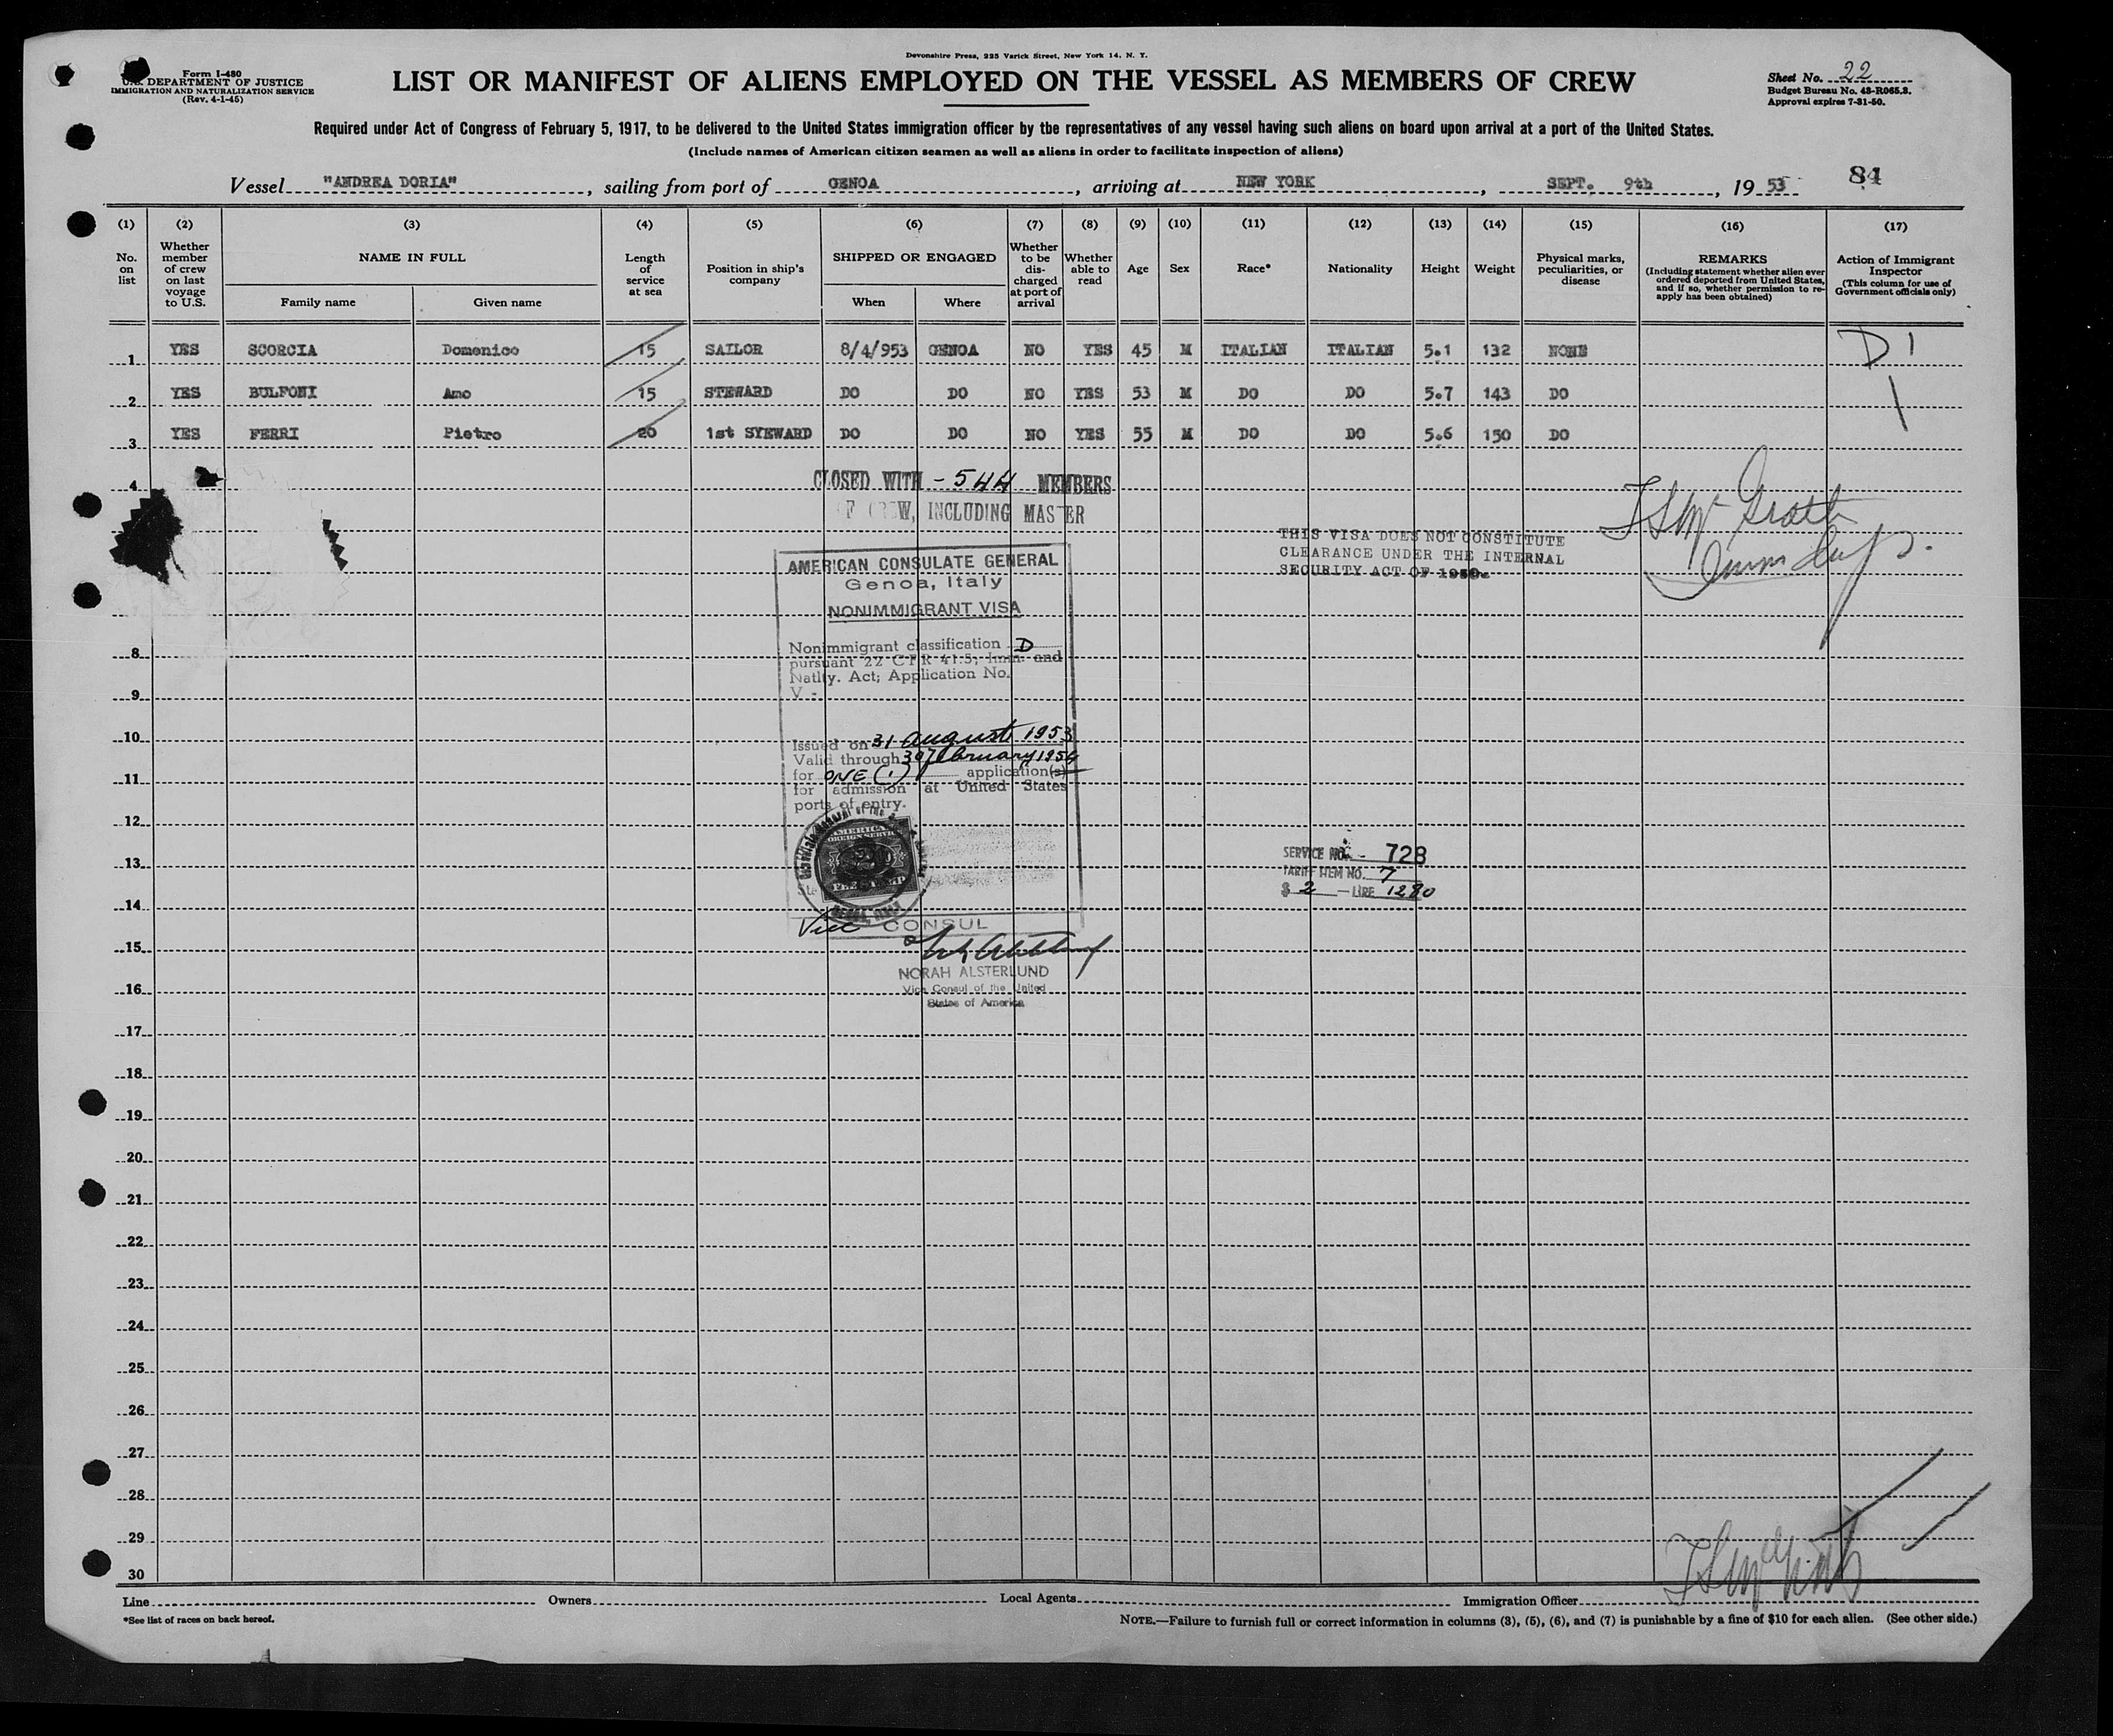 Devonshire Press, 225 Varick Street, New York 14, N. Y.
Form I-480
U.S. DEPARTMENT OF JUSTICE
IMMIGRATION AND NATURALIZATION SERVICE
(Rev. 4-1-45)
LIST OR MANIFEST OF ALIENS EMPLOYED ON THE VESSEL AS MEMBERS OF CREW
Sheet No. 22
Budget Bureau No. 43-R065.3.
Approval expires 7-31-50.
Required under Act of Congress of February 5, 1917, to be delivered to the United States immigration officer by the representatives of any vessel having such aliens on board upon arrival at a port of the United States.
(Include names of American citizen seamen as well as aliens in order to facilitate inspection of aliens)
Vessel "ANDREA DORIA", sailing from port of GENOA, arriving at NEW YORK, SEPT. 9th, 19 53
84
(1) (2) (3) (4) (5) (6) (7) (8) (9) (10) (11) (12) (13) (14) (15) (16) (17)
No. on list
Whether member of crew on last voyage to U.S.
NAME IN FULL
Family name Given name
Length of service at sea
Position in ship's company
SHIPPED OR ENGAGED
When Where
Whether to be discharged at port of arrival
Whether able to read
Age
Sex
Race*
Nationality
Height
Weight
Physical marks, peculiarities, or disease
REMARKS
(Including statement whether alien ever ordered deported from United States, and if so, whether permission to reapply has been obtained)
Action of Immigrant Inspector
(This column for use of Government officials only)
1 YES SCORCIA Domenico 15 SAILOR 8/4/953 GENOA NO YES 45 M ITALIAN ITALIAN 5.1 132 NONE D 1
2 YES BULFONI Amo 15 STEWARD DO DO NO YES 53 M DO DO 5.7 143 DO
3 YES FERRI Pietro 20 1st SYEWARD DO DO NO YES 55 M DO DO 5.6 150 DO
4
CLOSED WITH - 544 MEMBERS
OF CREW, INCLUDING MASTER
THIS VISA DOES NOT CONSTITUTE
CLEARANCE UNDER THE INTERNAL
SECURITY ACT OF 1950.
AMERICAN CONSULATE GENERAL
Genoa, Italy
NONIMMIGRANT VISA
Nonimmigrant classification D
pursuant 22 CFR 41.5; Imm. and
Natlty. Act; Application No.
V -
8
9
10
Issued on 31 August 1953
Valid through 30 February 1954
11
for ONE (1) application(s)
for admission at United States
ports of entry.
12
AMERICAN
FOREIGN SERVICE
FEE STAMP
SERVICE NO. - 728
13
TARIFF ITEM NO. 7
$ 2 - LIRE 1280
14
Vice CONSUL
15
NORAH ALSTERLUND
16
Vice Consul of the United
States of America
17
18
19
20
21
22
23
24
25
26
27
28
29
30
Line Owners Local Agents Immigration Officer
*See list of races on back hereof.
NOTE.—Failure to furnish full or correct information in columns (3), (5), (6), and (7) is punishable by a fine of $10 for each alien. (See other side.)